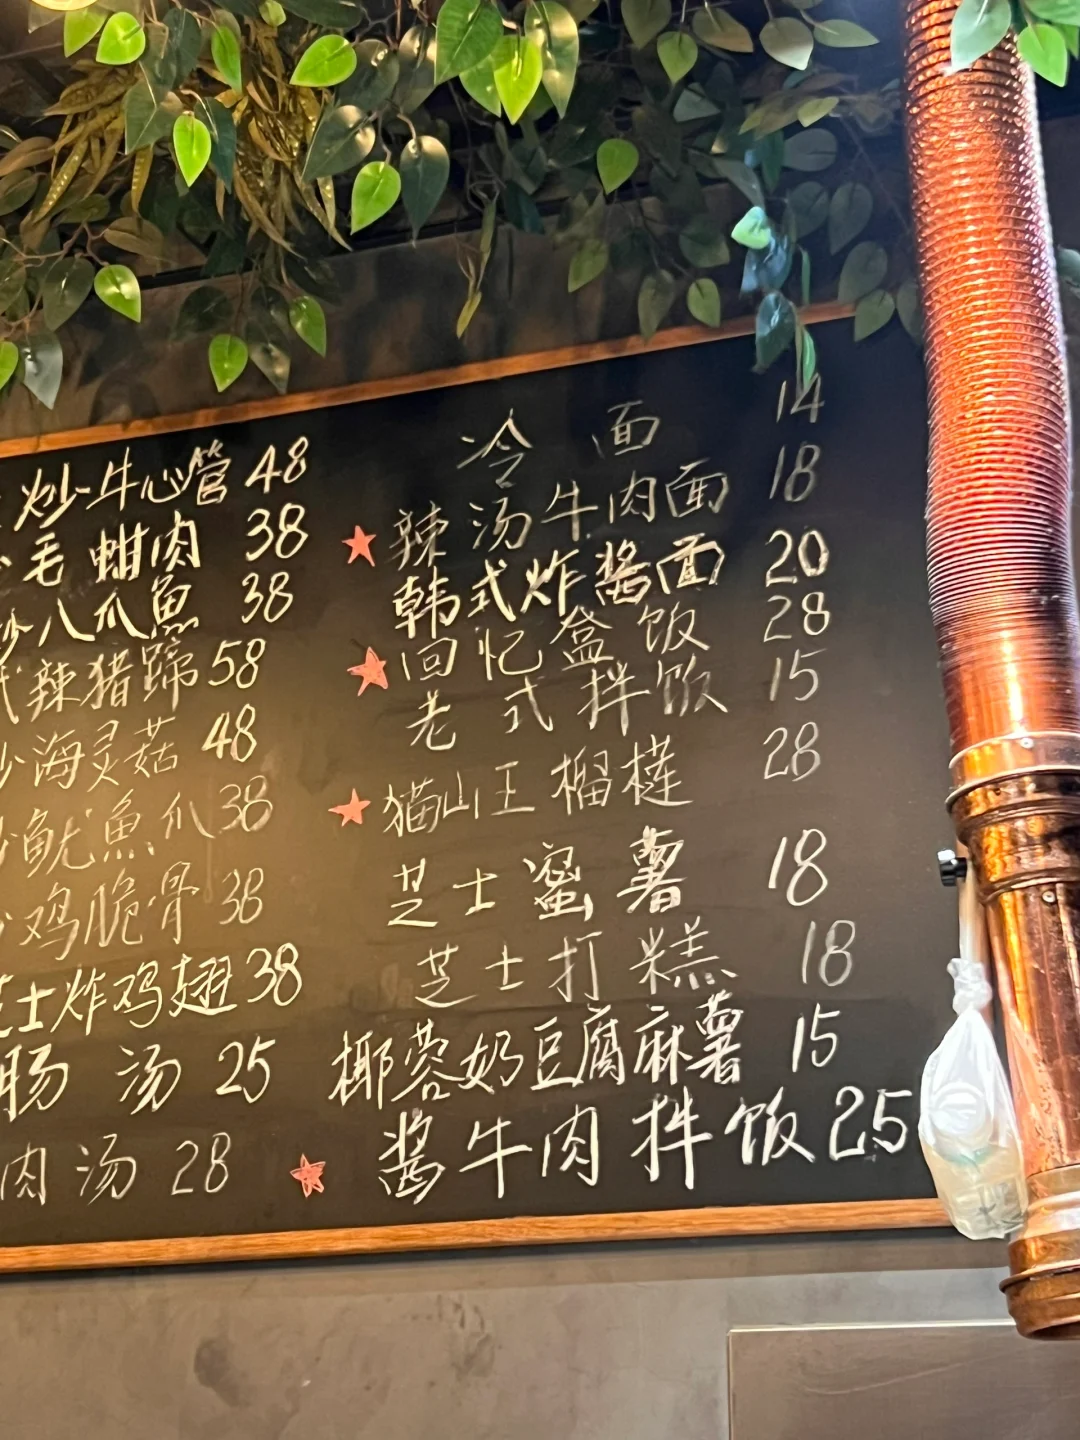 炒牛心管 48
毛蚶肉 38
炒八爪魚 38
式辣猪蹄 58
炒海灵菇 48
鱿魚爪 38
鸡脆骨 38
芝士炸鸡翅 38
肠汤 25
肉汤 28
冷面 14
辣汤牛肉面 18
韩式炸酱面 20
回忆盒饭 28
老式拌饭 15
猫山王榴梿 28
芝士蜜薯 18
芝士打糕 18
椰蓉奶豆腐麻薯 15
酱牛肉拌饭 25